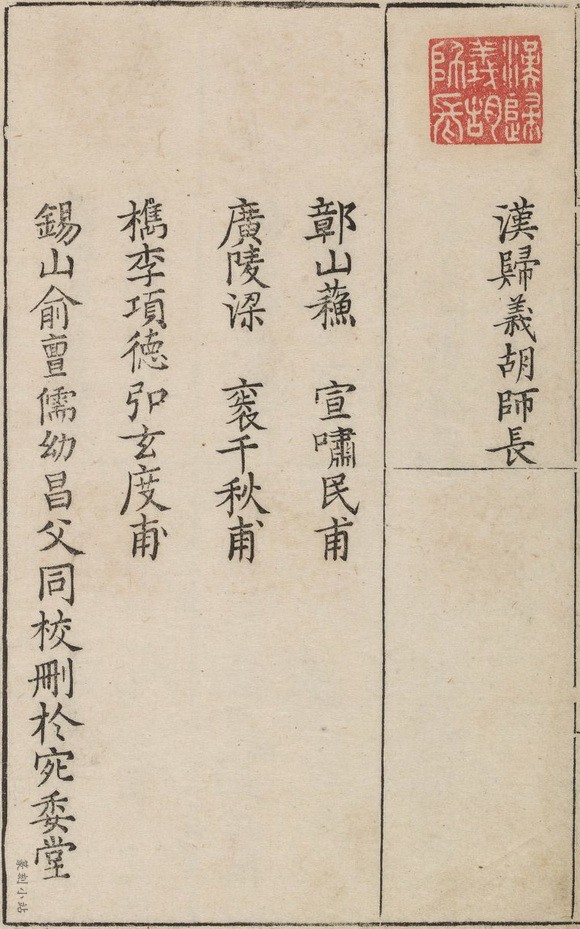 漢歸義胡師長
漢歸義胡師長
鄣山蘓 宣嘯民甫
廣陵梁 袠千秋甫
檇李項徳弘玄度甫
錫山俞亶儒幼昌父同校刪於宛委堂
篆刻小站